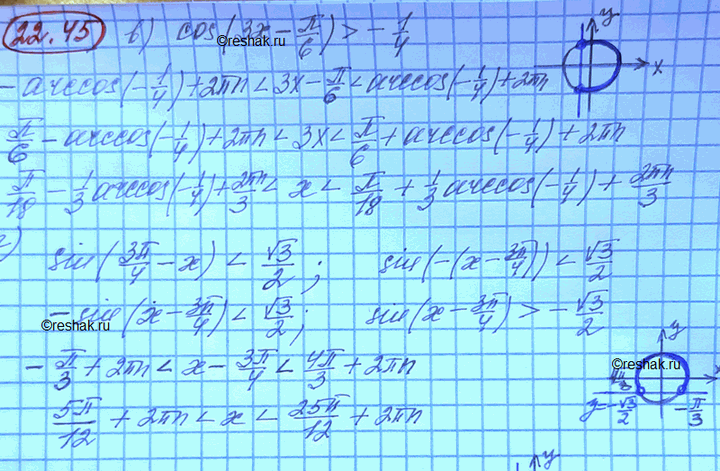 22.45 в) cos(3x - π/6) > -1/4
©reshak.ru
y
x
-arccos(-1/4) + 2πn < 3x - π/6 < arccos(-1/4) + 2πn
π/6 - arccos(-1/4) + 2πn < 3x < π/6 + arccos(-1/4) + 2πn
π/18 - 1/3 arccos(-1/4) + 2πn/3 < x < π/18 + 1/3 arccos(-1/4) + 2πn/3
г) sin(3π/4 - x) < √3/2; sin(-(x - 3π/4)) < √3/2
-sin(x - 3π/4) < √3/2; sin(x - 3π/4) > -√3/2
©reshak.ru
-π/3 + 2πn < x - 3π/4 < 4π/3 + 2πn
5π/12 + 2πn < x < 25π/12 + 2πn
y
©reshak.ru
x
4π/3
y = -√3/2
-π/3
y